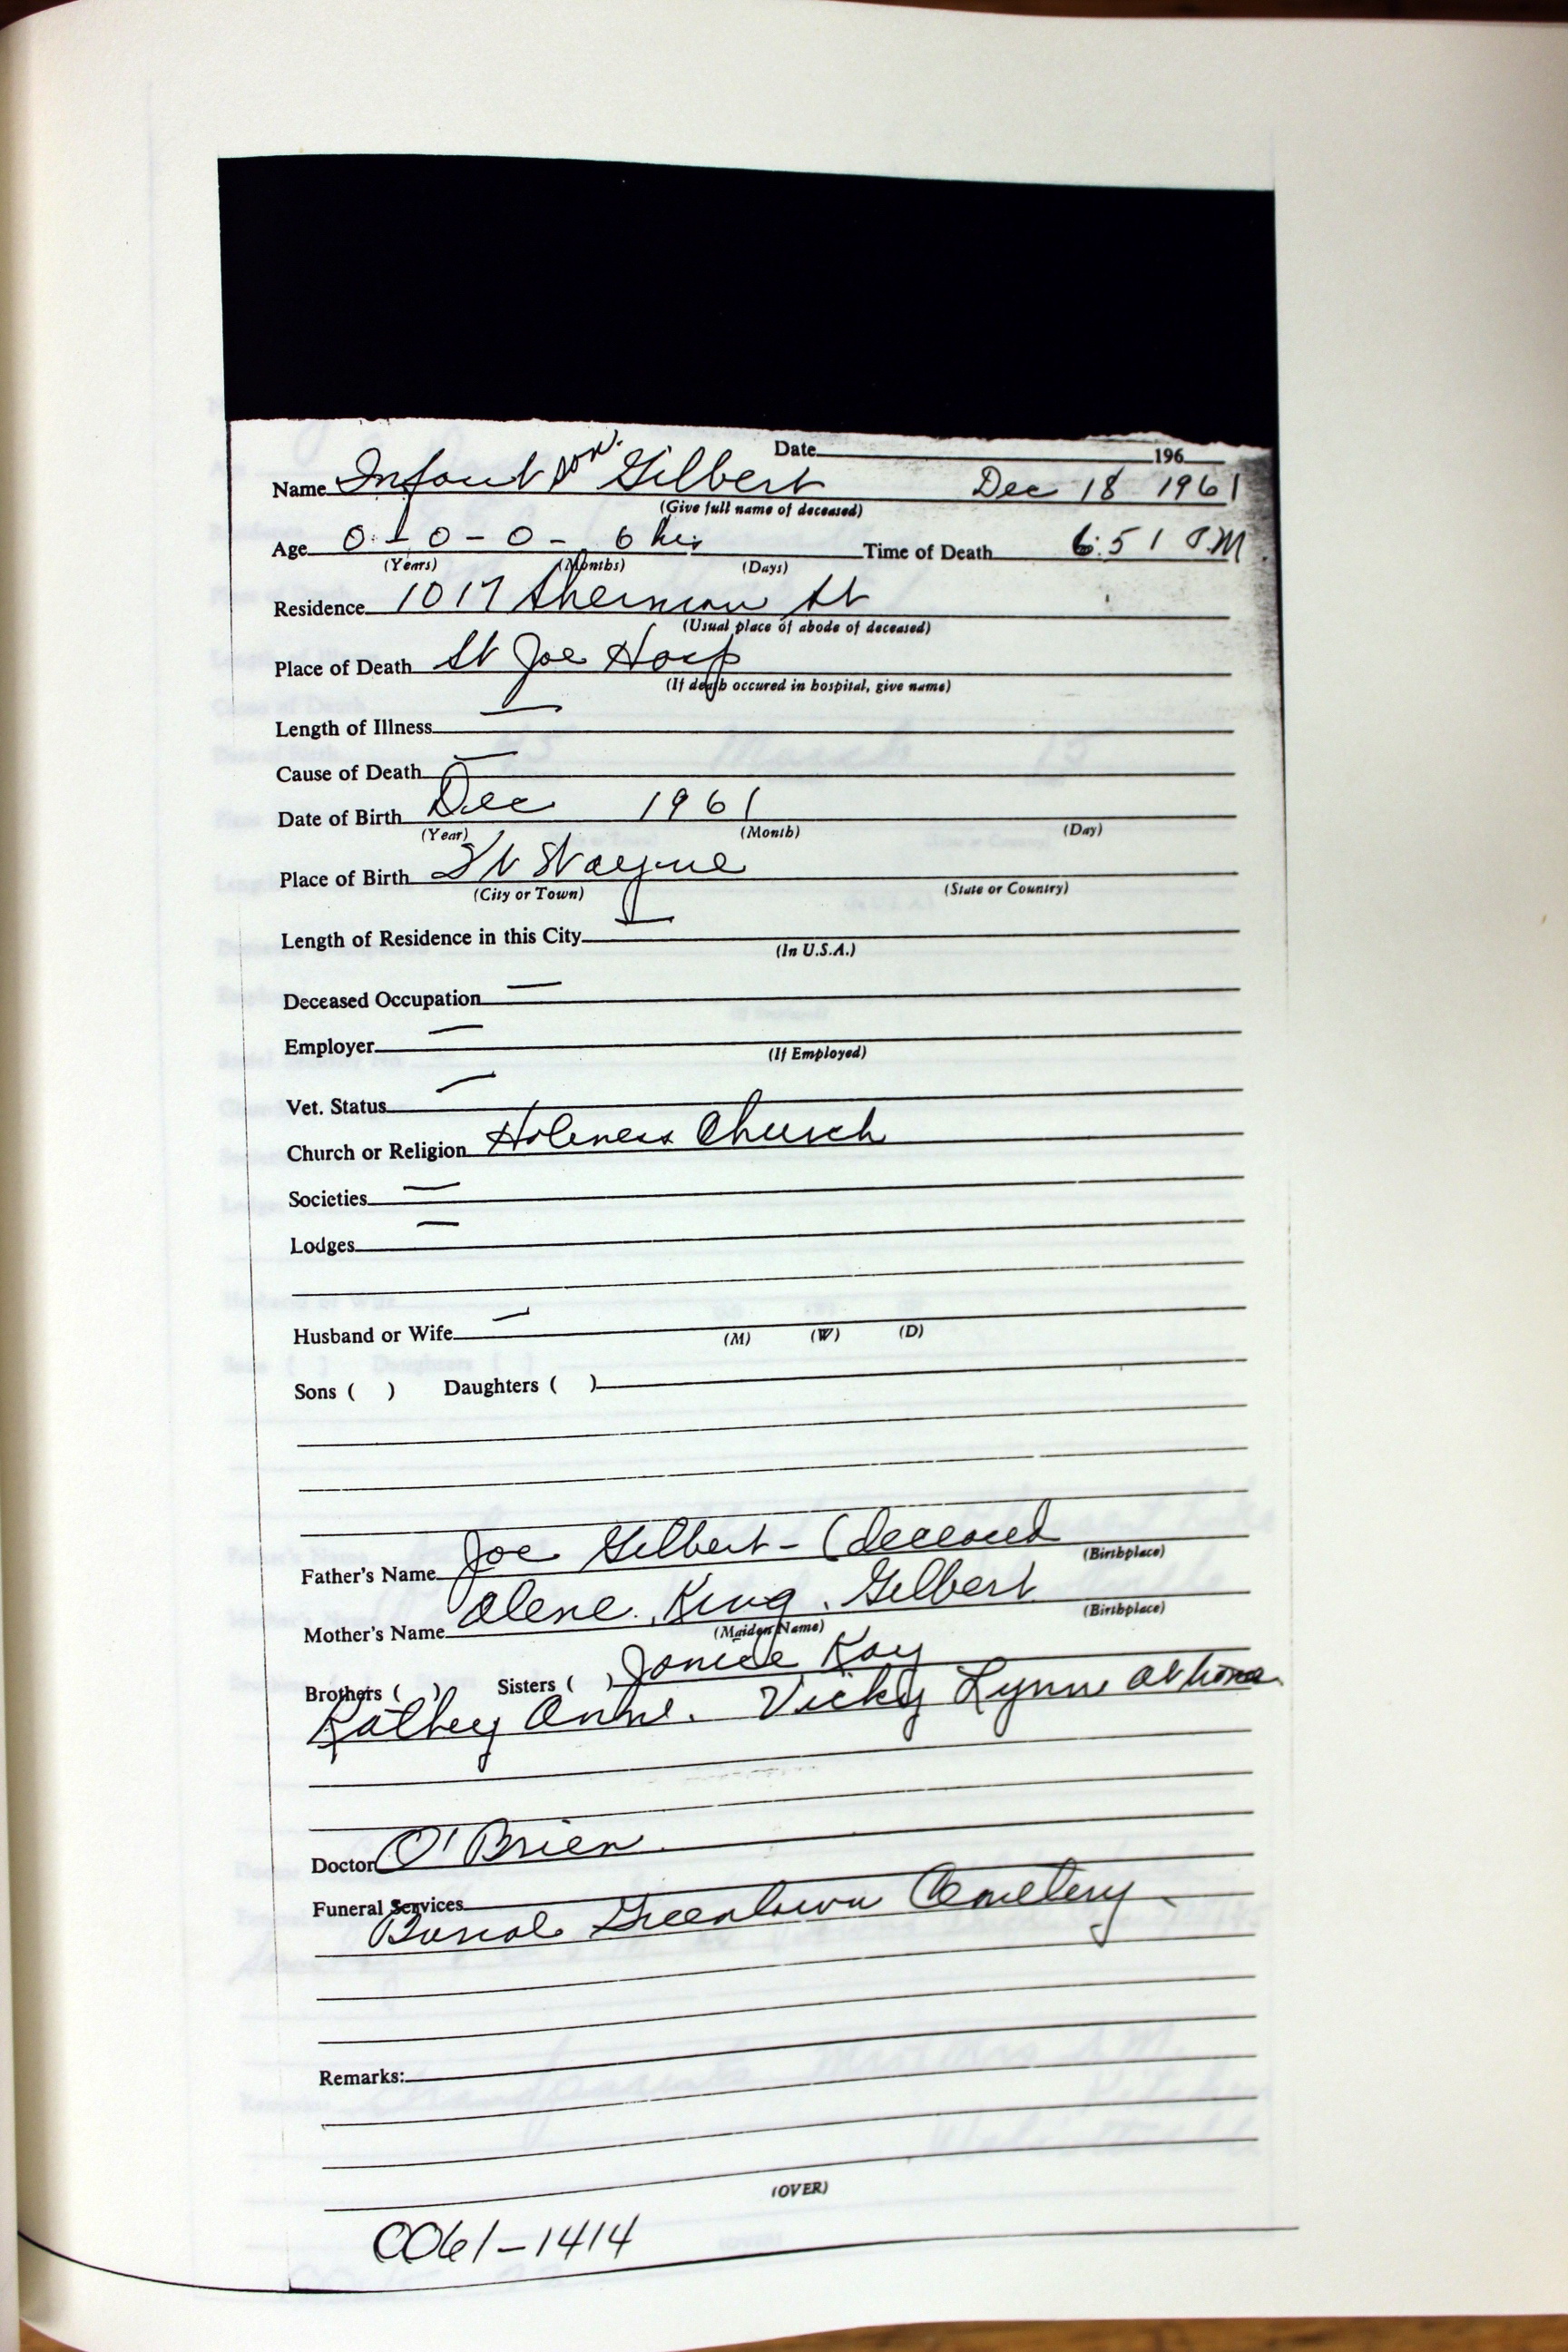 Date 196
Name Infant son Gilbert Dec 18 1961
(Give full name of deceased)
Age 0 - 0 - 0 - 6 hrs Time of Death 6:51 P.M.
(Years) (Months) (Days)
Residence 1017 Sherman St
(Usual place of abode of deceased)
Place of Death St Joe Hosp
(If death occured in hospital, give name)
Length of Illness —
Cause of Death —
Date of Birth Dec 1961
(Year) (Month) (Day)
Place of Birth Ft Wayne
(City or Town) (State or Country)
Length of Residence in this City —
(In U.S.A.)
Deceased Occupation —
Employer —
(If Employed)
Vet. Status —
Church or Religion Holiness Church
Societies —
Lodges —
Husband or Wife —
(M) (W) (D)
Sons ( ) Daughters ( )
Father's Name Joe Gilbert - (deceased
(Birthplace)
Mother's Name Olene King Gilbert
(Maiden Name) (Birthplace)
Brothers ( ) Sisters ( ) Janice Kay
Kathey Anne. Vicky Lynne at home
Doctor O'Brien
Funeral Services
Burial Greenlawn Cemetery
Remarks:
(OVER)
CO61-1414